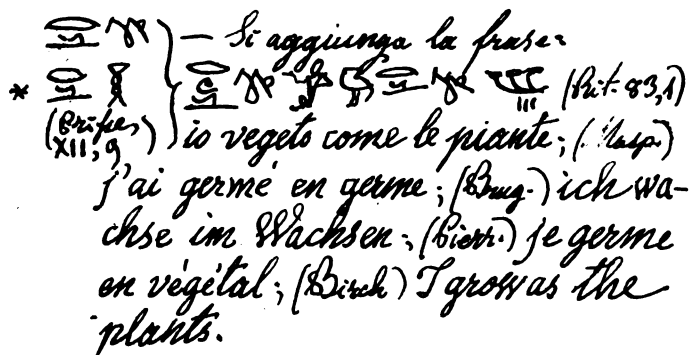 — Si aggiunga la frase:
* (Rit. 83,1)
XII, 9) io vegeto come le piante; (Masp.)
j'ai germé en germe; (Brug.) ich wa-
chse im Wachsen; (Pierr.) je germe
en végétal; (Birch) I grow as the
plants.